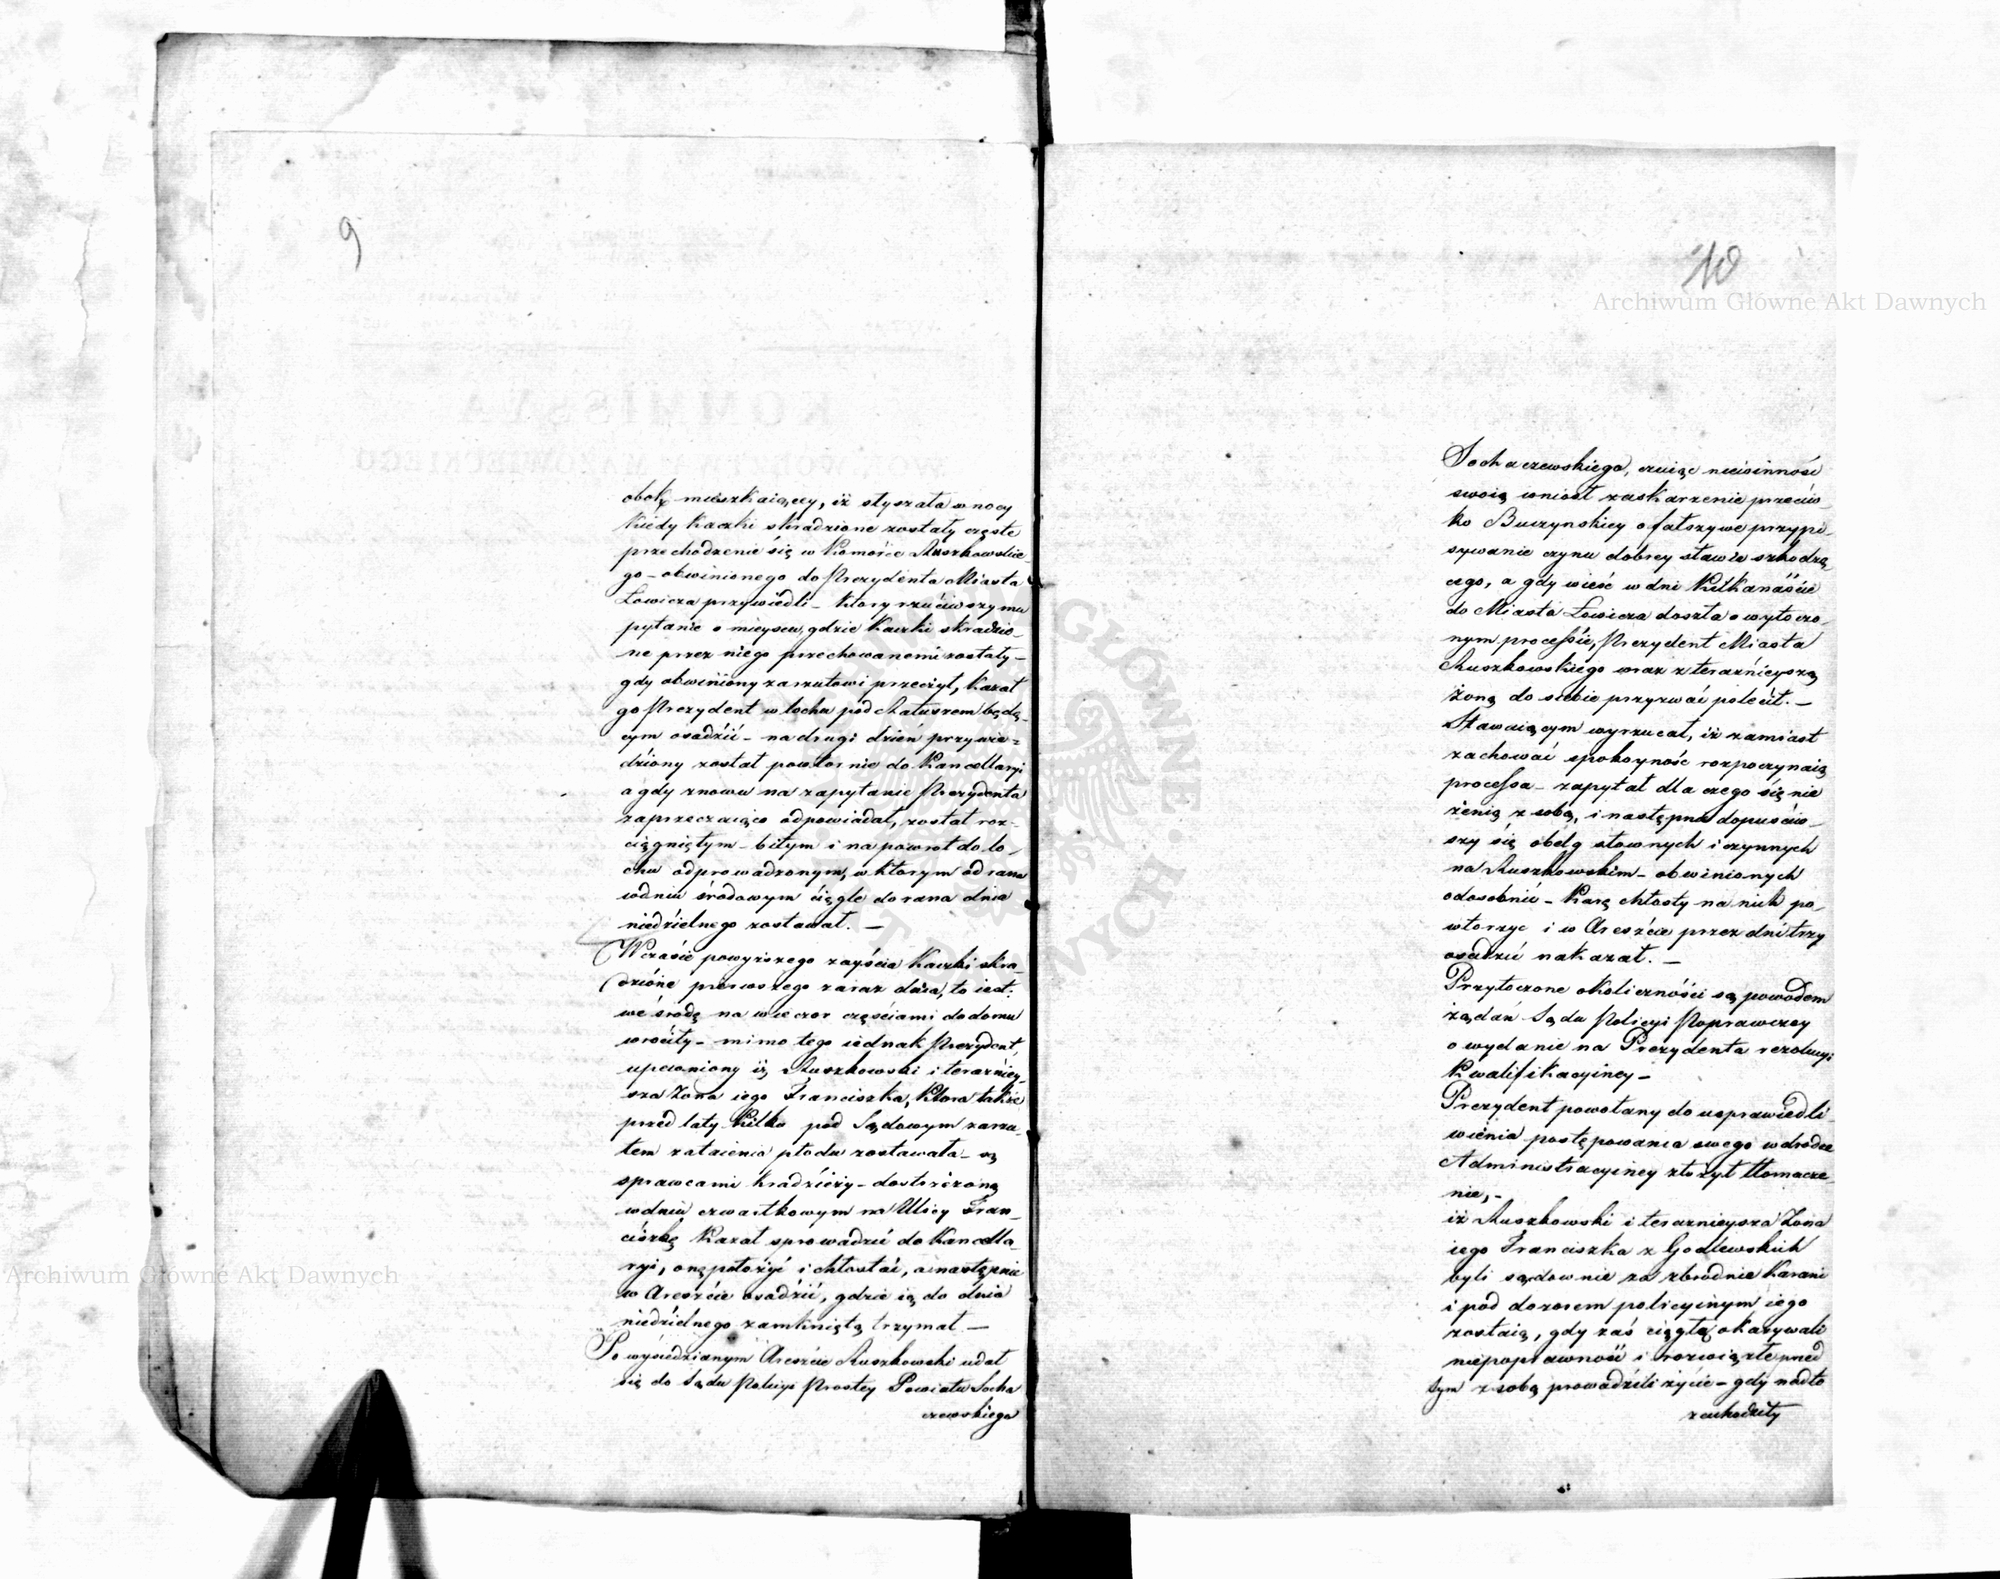 9
obok mieszkaiącey, iż słyszała w nocy
kiedy kaczki skradzione zostały częste
przechodzenie się w komórce Ruszkowskie
go – obwinionego do Prezydenta Miasta
Łowicza przywiedli – który rzuciwszy mu
pytanie o mieyscu, gdzie kaczki skradzio-
ne przez niego przechowanemi zostały –
gdy obwiniony zarzutowi przeczył, kazał
go Prezydent w lochu pod Ratuszem będą-
cym osadzić – na drugi dzień przywie-
dziony został powtornie do Kancellaryi
a gdy znowu na zapytanie Prezydenta
zaprzeczaiąco odpowiadał, został roz-
ciągniętym – bitym i na powrot do lo-
chu odprowadzonym, w ktorym od rana
w dniu środowym ciągle do rana dnia
niedzielnego zostawał. –
W czasie powyższego zayścia kaczki skra-
dzione pierwszego zaraz dnia, to iest:
we środę na wieczor częściami do domu
wrociły – mimo tego iednak Prezydent,
upewniony iż Ruszkowski i teraźniey-
sza Żona iego Franciszka, ktora także
przed laty kilko pod Sądowym zarzu-
tem zataienia płodu zostawała – są
sprawcami kradzieży – dostrzeżoną
w dniu czwartkowym na Ulicy Fran-
ciszkę kazał sprowadzić do Kancella-
ryi, onę położyć i chłostać, a następnie
w Areszcie osadzić, gdzie ią do dnia
niedzielnego zamkniętą trzymał –
Po wysiedzianym Areszcie Ruszkowski udał
się do Sądu Policyi Prostey Powiatu Socha
czewskiego
10
Archiwum Główne Akt Dawnych
Sochaczewskiego, czuiąc niewinność
swoią wniosł zaskarzenie przeciw-
ko Buczynskiey o fałszywe przypi-
sywanie czynu dobrey sławie szkodzą
cego, a gdy wieść w dni kilkanaście
do Miasta Łowicza doszła o wytoczo-
nym processie, Prezydent Miasta
Ruszkowskiego wraz z teraźnieyszą
żoną do siebie przyzwać polecił. –
Stawaiącym wyrzucał, iż zamiast
zachować spokoyność rozpoczynaią
processa – zapytał dla czego się nie
żenią z sobą, i następnie dopuściw-
szy się obelg słownych i czynnych
na Ruszkowskim – obwinionych
odosobnić – karę chłosty na nich po-
wtorzyć i w Areszcie przez dni trzy
osadzić nakazał. –
Przytoczone okoliczności są powodem
żądań Sądu Policyi Poprawczey
o wydanie na Prezydenta rezolucyi
kwalifikacyiney –
Prezydent powołany do usprawiedli
wienia postępowania swego w drodze
Administracyiney złożył tłomacze-
nie, –
iż Ruszkowski i teraznieysza Żona
iego Franciszka z Godlewskich
byli sądownie za zbrodnie karani
i pod dozorem policyinym iego
zostaią, gdy zaś ciągłą okazywali
niepoprawność i rozwiązłe przed
tym z sobą prowadzili życie – gdy nadto
zachodziły
Archiwum Główne Akt Dawnych